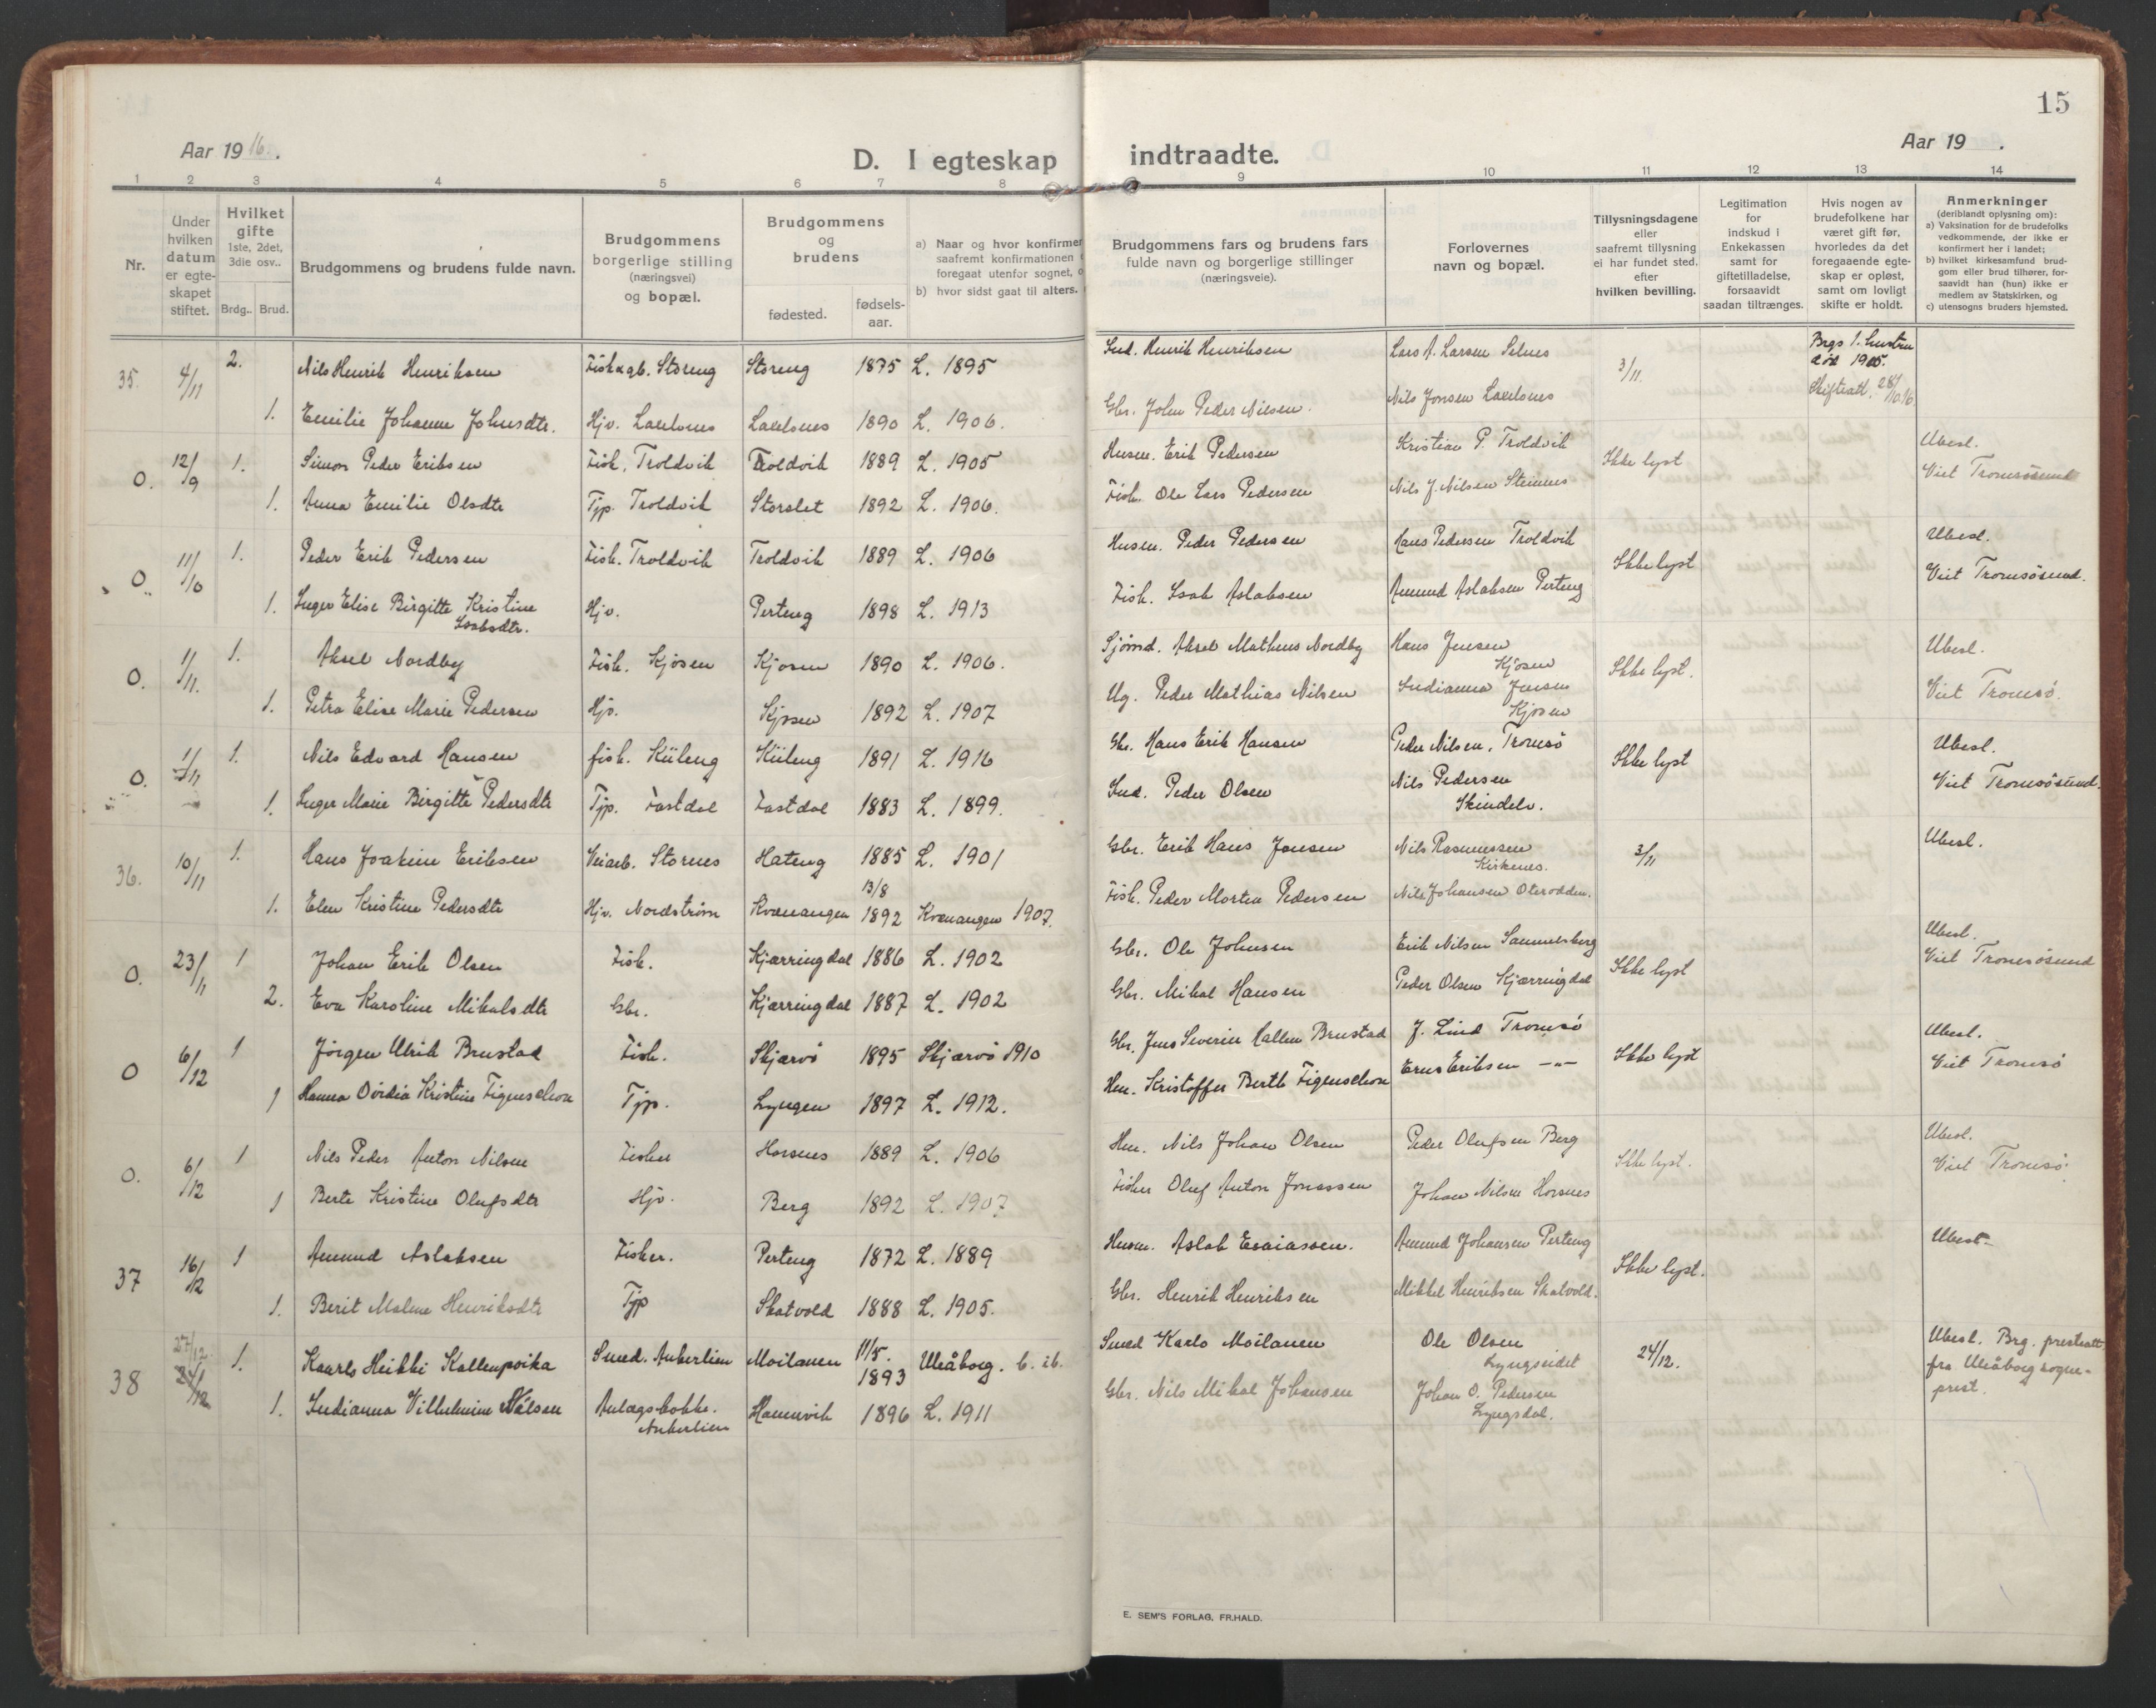 15
Aar 1916.
D. I egteskap indtraadte.
Aar 19 .
1 2 3 4 5 6 7 8 9 10 11 12 13 14
Nr.
Under hvilken datum er egte-skapet stiftet.
Hvilket gifte 1ste, 2det, 3die osv..
Brdg. Brud.
Brudgommens og brudens fulde navn.
Brudgommens borgerlige stilling (næringsvei) og bopæl.
Brudgommens og brudens
fødested.
fødsels-aar.
a) Naar og hvor konfirmer
saafremt konfirmationen
foregaat utenfor sognet, o
b) hvor sidst gaat til alters.
Brudgommens fars og brudens fars fulde navn og borgerlige stillinger (næringsveie).
Forlovernes navn og bopæl.
Tillysningsdagene eller saafremt tillysning ei har fundet sted, efter hvilken bevilling.
Legitimation for indskud i Enkekassen samt for giftetilladelse, forsaavidt saadan tiltrænges.
Hvis nogen av brudefolkene har været gift før, hvorledes da det foregaaende egte-skap er opløst, samt om lovligt skifte er holdt.
Anmerkninger
(deriblandt oplysning om):
a) Vaksination for de brudefolks vedkommende, der ikke er konfirmert her i landet;
b) hvilket kirkesamfund brud-gom eller brud tilhører, for-saavidt han (hun) ikke er medlem av Statskirken, og
c) utensogns bruders hjemsted.
35. 4/11 2. Nils Henrik Henriksen Fisk & gb. Storeng Storeng 1875 L. 1895 Ind. Henrik Henriksen Lars A. Larsen Selnes 3/11. Brgs 1. hustru død 1905. Skifteatt. 28/10 16.
1. Emilie Johanne Johnsdtr. Hjv. Lakselvnes 1890 L. 1906. Gbr. John Peder Nilsen. Nils Jonsen
O. 12/9 1. Simon Peder Eriksen Fisk. Troldvik Troldvik 1889 L. 1905 Husm. Erik Pedersen Kristian P. Troldvik Ikke lyst Ubesl. Viet Tromsøsund
1. Anna Emilie Olsdtr Tjp. Troldvik Storslet 1892 L. 1906. Fisk. Ole Lars Pedersen Nils J. Nilsen Steinnes
O. 11/10 1. Peder Erik Pedersen Fisk. Troldvik Troldvik 1889 L. 1906 Husm. Peder Pedersen Hans Pedersen Troldvik Ikke lyst Ubesl. Viet Tromsøsund.
1. Inger Elise Birgitte Kristine Isaksdtr. Hjv. Perteng 1898 L. 1913 Fisk. Isak Aslaksen Amund Aslaksen Perteng
O. 1/11. 1. Aksel Nordby Fisk. Kjosen Kjosen 1890 L. 1906. Sjømd. Aksel Matheus Nordby Hans Jensen Kjosen Ikke lyst. Ubesl. Viet Tromsø.
1. Petra Elise Marie Pedersen Hjv. Kjosen 1892 L. 1907 Ug. Peder Mathias Nilsen Indianna Jensen Kjosen
O. 1/11 1. Nils Edvard Hansen fisk. Kiileng Kiileng 1891 L. 1916 Gbr. Hans Erik Hansen Peder Nilsen, Tromsø Ikke lyst Ubesl. Viet Tromsøsund.
1. Inger Marie Birgitte Pedersdtr Tjp. Fastdal Fastdal 1883 L. 1899. Ind. Peder Olsen Nils Pedersen Skindelv.
36. 10/11 1. Hans Joakim Eriksen Veiarb. Stornes Hateng 1885 L. 1901 Gbr. Erik Hans Jensen Nils Rasmussen Kirkenes. 3/11 Ubesl.
1. Elen Kristine Pedersdtr Hjv. Nordstrøm Kvænangen 13/8 1892 Kvænangen 1907. Fisk. Peder Morten Pedersen Nils Johansen Oterodden.
O. 23/11 1 Johan Erik Olsen Fisk. Kjærringdal 1886 L. 1902 Gbr. Ole Johnsen Erik Nilsen Samuelsberg Ikke lyst Ubesl. Viet Tromsøsund
2. Eva Karoline Mikalsdtr Gbr. Kjærringdal 1887 L. 1902 Gbr. Mikal Hansen Peder Olsen Kjærringdal
O 6/12 1 Jørgen Ulrik Brustad Fisk. Skjærvø 1895 Skjærvø 1910 Gbr. Jens Severin Hallen Brustad J. Lind Tromsø Ikke lyst Ubesl. Viet Tromsø
1 Hanna Dordia Kristine Figenschou Tjp. Lyngen 1897 L. 1912. Hm. Kristoffer Berth Figenschou Erns Eriksen -"-
O. 6/12 1 Nils Peder Anton Nilsen Fisker Horsnes 1889 L. 1906 Hm. Nils Johan Olsen Peder Olufsen Berg Ikke lyst. Ubesl. Viet Tromsø.
1 Berte Kristine Olufsdtr Hjv. Berg 1892 L. 1907 Fisker Oluf Anton Jonassen Johan Nilsen Horsnes
37 16/12 1 Amund Aslaksen Fisker. Perteng 1872 L. 1889 Husm. Aslak Esaiassen. Amund Johansen Perteng Ikke lyst. Ubesl.
1. Berit Malene Henriksdtr Tjp Skatvold 1888 L. 1905. Gbr. Henrik Henriksen Mikkel Henriksen Skatvold.
38 27/12 24/12 1. Kaarlo Heikki Kallenpoika Smed. Ankerlien Moilanen 11/5. 1893 Uleåborg. Smed Karlo Moilanen Ole Olsen Lyngseidet 24/12. Ubesl. Brg. presteatt. fra Uleåborg sogne-prest.
1. Indianna Vilhelmine Nilsen Anlægskokke. Ankerlien Hamnvik 1896 L. 1911 Gbr. Nils Mikal Johansen Johan O. Pedersen Lyngsdal.
E. SEM'S FORLAG, FR.HALD.